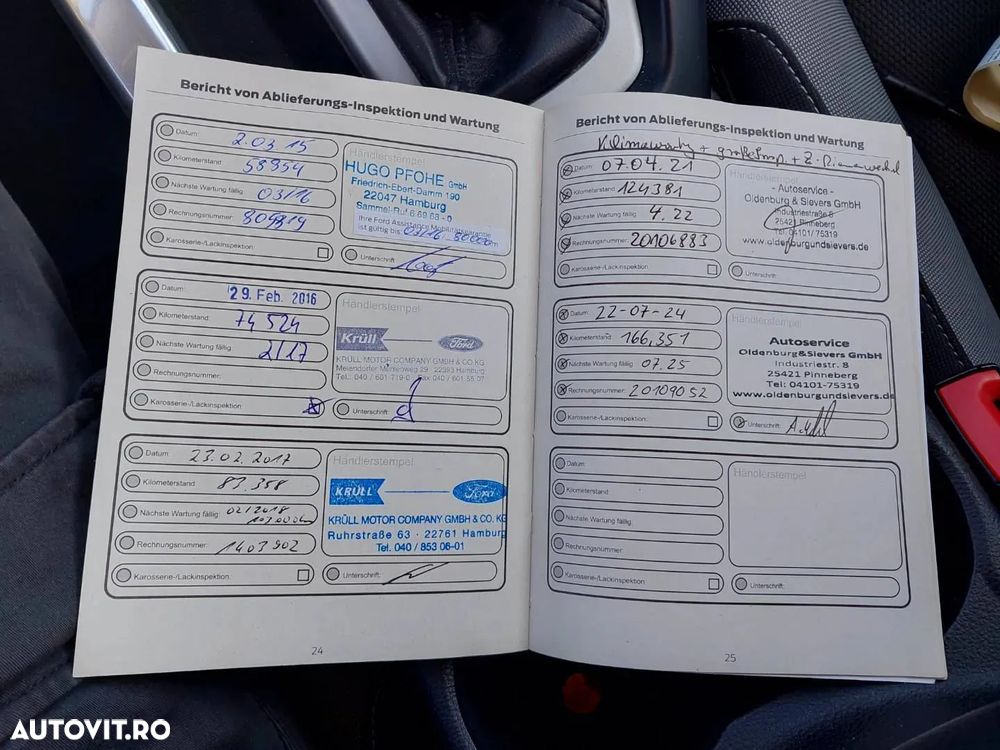 Bericht von Ablieferungs-Inspektion und Wartung
Datum: 2.03 15
Kilometerstand: 58954
Nächste Wartung fällig: 03/16
Rechnungsnummer: 809819
Karosserie-/Lackinspektion:
Händlerstempel
HUGO PFOHE GmbH
Friedrich-Ebert-Damm 190
22047 Hamburg
Sammel-Ruf 6 69 68 - 0
Ihre Ford Assistance Mobilitätsgarantie
ist gültig bis: 03/16
Unterschrift:
Datum: 29. Feb. 2016
Kilometerstand: 74 524
Nächste Wartung fällig: 2/17
Rechnungsnummer:
Karosserie-/Lackinspektion:
Händlerstempel
Krüll Ford
KRÜLL MOTOR COMPANY GMBH & CO.KG
Meiendorfer Mühlenweg 29 · 22393 Hamburg
Tel.: 040 / 601 719-0
Unterschrift:
Datum: 23.02.2017
Kilometerstand: 83.358
Nächste Wartung fällig: 02/2018
Rechnungsnummer: 1403902
Karosserie-/Lackinspektion:
Händlerstempel
KRÜLL Ford
KRÜLL MOTOR COMPANY GMBH & CO. KG
Ruhrstraße 63 · 22761 Hamburg
Tel. 040 / 853 06-01
Unterschrift:
24
Bericht von Ablieferungs-Inspektion und Wartung
Datum: 07.04.21
Kilometerstand: 124381
Nächste Wartung fällig: 4.22
Rechnungsnummer: 20106883
Karosserie-/Lackinspektion:
Händlerstempel
- Autoservice -
Oldenburg & Sievers GmbH
Industriestraße 8
25421 Pinneberg
Tel. 04101/ 75319
www.oldenburgundsievers.de
Unterschrift:
Datum: 22-07-24
Kilometerstand: 166,351
Nächste Wartung fällig: 07.25
Rechnungsnummer: 20109052
Karosserie-/Lackinspektion:
Händlerstempel
Autoservice
Oldenburg&Sievers GmbH
Industriestr. 8
25421 Pinneberg
Tel: 04101-75319
www.oldenburgundsievers.de
Unterschrift:
Datum:
Kilometerstand:
Nächste Wartung fällig:
Rechnungsnummer:
Karosserie-/Lackinspektion:
Händlerstempel
Unterschrift:
25
AUTOVIT.RO